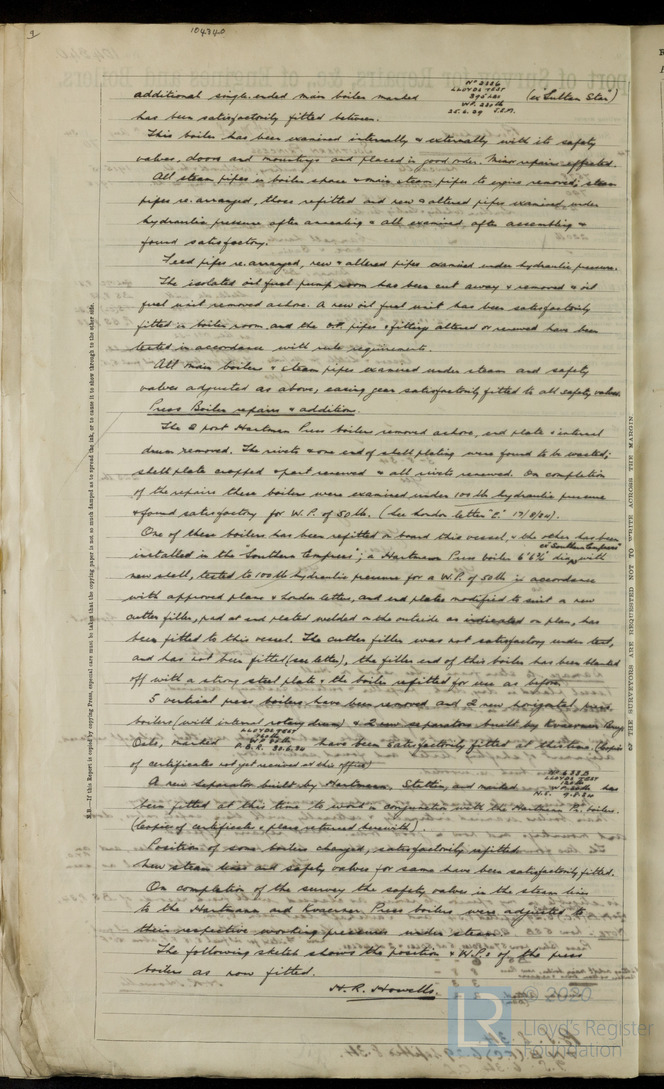 3
104340
additional single-ended main boiler marked
Nº 2336
LLOYDS TEST
395 LBS
W.P. 220 lb
25.6.29 J.E.A.
(ex "Sutton Star")
has been satisfactorily fitted between.
This boiler has been examined internally & externally with its safety
valves, doors and mountings and placed in good order. Minor repairs effected.
All steam pipes in boiler space & main steam pipes to engine removed, steam
pipes re-arranged, those refitted and new & altered pipes examined under
hydraulic pressure after annealing & all examined after assembling &
found satisfactory.
Feed pipes re-arranged, new & altered pipes examined under hydraulic pressure.
The isolated oil fuel pump room has been cut away & removed & oil
fuel unit removed ashore. A new oil fuel unit has been satisfactorily
fitted in boiler room and the O.F. pipes & fittings altered or renewed have been
tested in accordance with rule requirements.
All main boilers & steam pipes examined under steam and safety
valves adjusted as above, easing gear satisfactorily fitted to all safety valves.
Press Boiler repairs & addition.
The 2 port Hartman Press boilers removed ashore, end plate & internal
drum removed. The rivets & one end of shell plating were found to be wasted;
shell plate cropped & part renewed & all rivets renewed. On completion
of the repairs these boilers were examined under 100 lb hydraulic pressure
& found satisfactory for W.P. of 50 lb. (See London letter "E" 17/8/34).
One of these boilers has been refitted on board this vessel, & the other has been
installed in the "Southern Empress"; a Hartmann Press boiler 6' 6¾" diam with
ex "Southern Empress"
new shell, tested to 100 lb hydraulic pressure for a W.P. of 50 lb in accordance
with approved plans & London letters, and end plates modified to suit a new
cutter filler, pad at end plated welded on the outside as indicated on plan, has
been fitted to this vessel. The cutter filler was not satisfactory under test,
and has not been fitted (see letter), the filler end of this boiler has been blanked
off with a strong steel plate & the boiler refitted for use as before.
5 vertical press boilers have been removed and 2 new horizontal press
boilers (with internal rotary drum) & 2 new separators built by Kvaerner Brug
Oslo, marked
LLOYDS TEST
W.P.
22.6.34
have been satisfactorily fitted at this time. (Copies
of certificates not yet received at this office)
A new separator built by Hartmann, Stettin, and marked
LLOYDS TEST
W.P.
has
been fitted at this time to work in conjunction with the Hartmann Ps. boilers.
(Copies of certificate & plans returned herewith).
Position of some boilers changed, satisfactorily refitted.
New steam lines and safety valves for same have been satisfactorily fitted.
On completion of the survey the safety valves in the steam line
to the Hartmann and Kvaerner Press boilers were adjusted to
their respective working pressures under steam.
The following sketch shows the position & W.P.s of the press
boilers as now fitted.
H. R. Howells.
N.B.—If this Report is copied by copying Press, especial care must be taken that the copying paper is not so much damped as to spread the ink, or to cause it to show through to the other side.
THE SURVEYORS ARE REQUESTED NOT TO WRITE ACROSS THE MARGIN
© 2020
LR
Lloyd's Register
Foundation